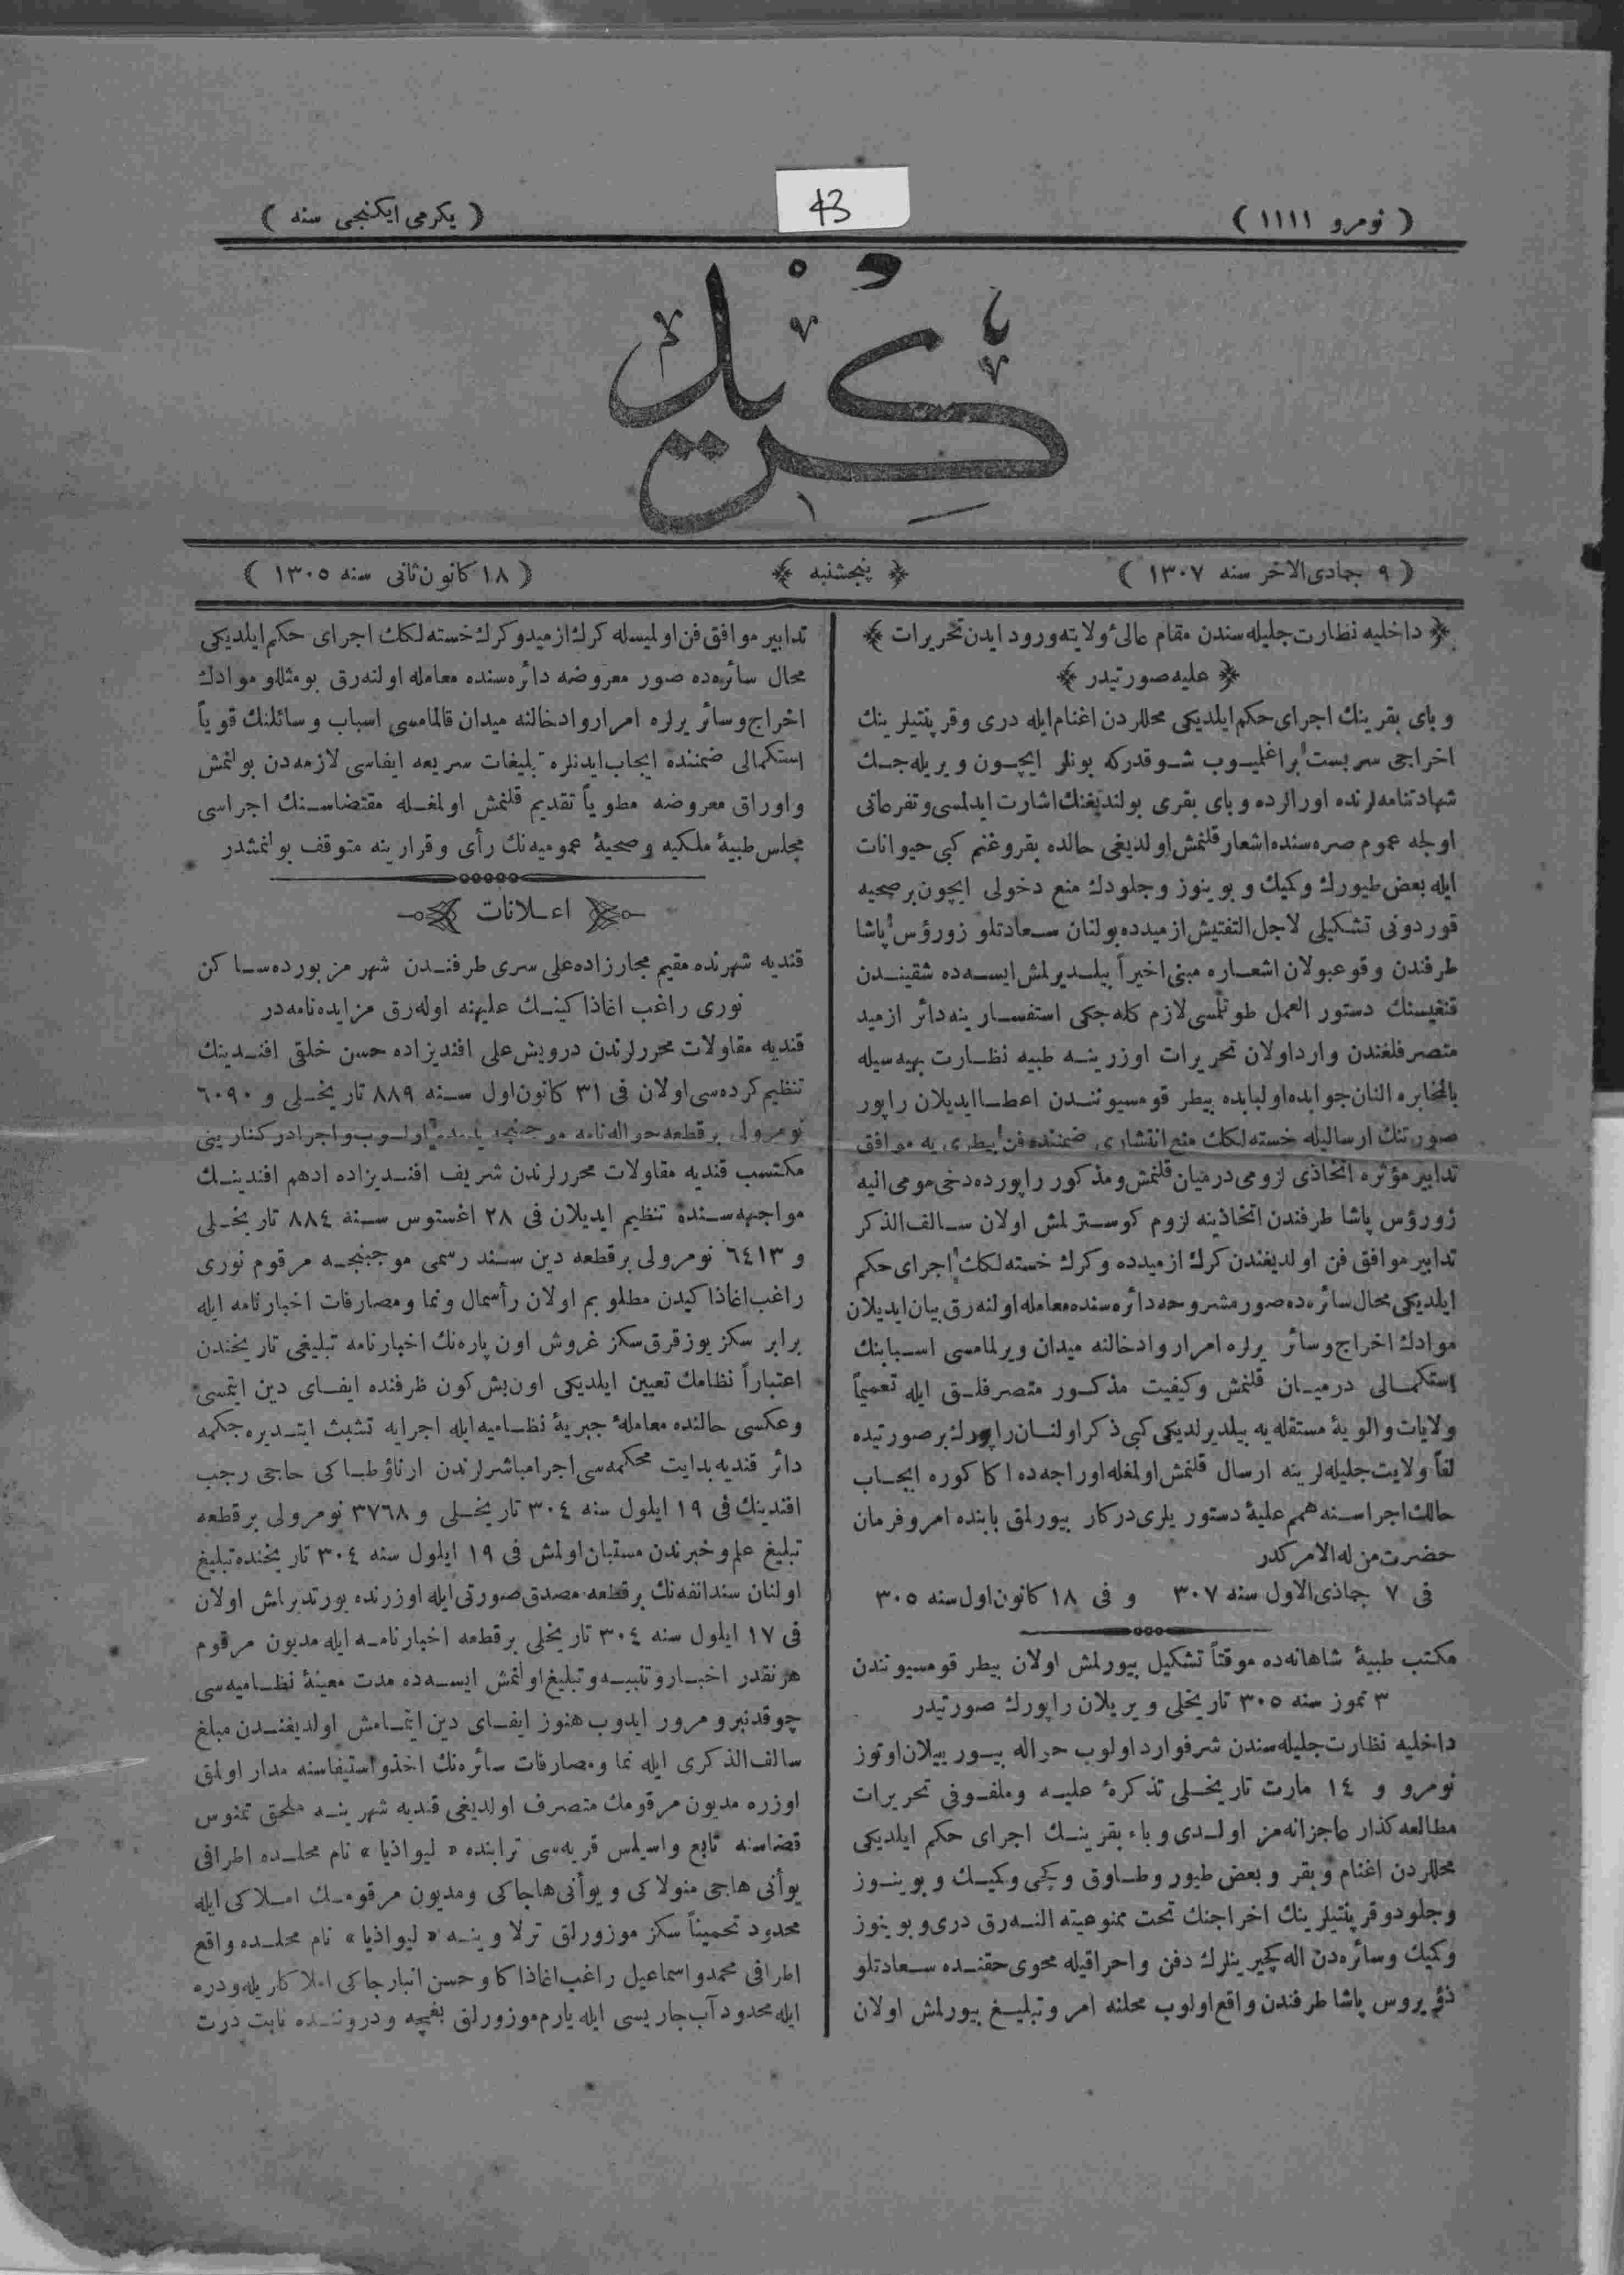 ( نومرو ١١١١ )
43
( يكرمى ايكنجى سنه )
كريد
( ٩ جمادى الاخر سنه ١٣٠٧ )
پنجشنبه
( ١٨ كانون ثانى سنه ١٣٠٥ )
داخليه نظارت جليله سندن مقام عالئ ولايته ورود ايدن تحريرات
عليه صورتيدر
وباى بقرينك اجراى حكم ايلديكى محللردن اغنام ايله درى وقرپنتيلرينك
اخراجى سربست براغليوب شوقدركه بونلر ايچون ويريله جك
شهادتنامه لرنده اورالرده وباى بقرى بولنديغنك اشارت ايدلمسى وتفرعاتى
اولجه عموم صره سنده اشعار قلنمش اولديغى حالده بقر وغنم كبى حيوانات
ايله بعض طيورك وكميك وبوينوز وجلودك منع دخولى ايچون بر صحيه
قوردونى تشكيلى لاجل التفتيش ازميدده بولنان سعادتلو زورؤس پاشا
طرفندن وقوعبولان اشعاره مبنى اخيراً بيلديرلمش ايسه ده شقيندن
قنغيسنك دستور العمل طوتلمسى لازم كله جكى استفسارينه دائر ازميد
متصرفلغندن وارد اولان تحريرات اوزرينه طبيه نظارت بهيه سيله
بالمخابره النان جوابده اولبابده بيطر قومسيونندن اعطا ايديلان راپور
صورتنك ارساليله خسته لكك منع انتشارى ضمننده فن بيطرى يه موافق
تدابير مؤثره اتخاذى لزومى درميان قلنمش ومذكور راپورده دخى مومى اليه
زورؤس پاشا طرفندن اتخاذينه لزوم كوسترلمش اولان سالف الذكر
تدابير موافق فن اولديغندن كرك ازميدده وكرك خسته لكك اجراى حكم
ايلديكى محال سائره ده صور مشروحه دائره سنده معامله اولنه رق بيان ايديلان
موادك اخراج وسائر يرلره امرار وادخالنه ميدان ويرلمامسى اسبابنك
استكمالى درميان قلنمش وكيفيت مذكور متصرفلق ايله تعميماً
ولايات والويۀ مستقله يه بيلديرلديكى كبى ذكر اولنان راپورك بر صورتيده
لفاً ولايت جليله لرينه ارسال قلنمش اولمغله اوراجه ده اكا كوره ايجاب
حالك اجراسنه همم عليۀ دستوريلرى دركار بيورلمق بابنده امر وفرمان
حضرت من له الامركدر
فى ٧ جماذى الاول سنه ٣٠٧ و فى ١٨ كانون اول سنه ٣٠٥
مكتب طبيۀ شاهانه ده موقتاً تشكيل بيورلمش اولان بيطر قومسيونندن
٣ تموز سنه ٣٠٥ تاريخلى ويريلان راپورك صورتيدر
داخليه نظارت جليله سندن شرفوارد اولوب حواله بيوريلان اوتوز
نومرو و ١٤ مارت تاريخلى تذكرۀ عليه وملفوفى تحريرات
مطالعه كذار عاجزانه من اولدى وباء بقرينك اجراى حكم ايلديكى
محللردن اغنام وبقر وبعض طيور وطاوق وكچى وكميك وبوينوز
وجلود وقرپنتيلرينك اخراجنك تحت ممنوعيته النه رق درى وبوينوز
وكميك وسائره دن اله كچيرينلرك دفن واحراقيله محوى حقنده سعادتلو
ذؤيروس پاشا طرفندن واقع اولوب محلنه امر وتبليغ بيورلمش اولان
تدابير موافق فن اولميسله كرك ازميد وكرك خسته لكك اجراى حكم ايلديكى
محال سائره ده صور معروضه دائره سنده معامله اولنه رق بومثللو موادك
اخراج وسائر يرلره امرار وادخالنه ميدان قالمامسى اسباب وسائلنك قوياً
استكمالى ضمننده ايجاب ايدنلره تبليغات سريعه ايفاسى لازمه دن بولنمش
واوراق معروضه مطوياً تقديم قلنمش اولمغله مقتضاسنك اجراسى
مجلس طبيۀ ملكيه وصحيۀ عموميه نك رأى وقرارينه متوقف بولنمشدر
اعلانات
قنديه شهرنده مقيم مجارزاده على سرى طرفندن شهر مزبورده ساكن
نورى راغب اغاذاكينك عليهنه اوله رق مزايده نامه در
قنديه مقاولات محررلرندن درويش على افنديزاده حسن خلقى افندينك
تنظيم كرده سى اولان فى ٣١ كانون اول سنه ٨٨٩ تاريخلى و ٦٠٩٠
نومرولى بر قطعه حواله نامه موجبنجه اولوب واجرا دركنارينى
مكتسب قنديه مقاولات محررلرندن شريف افنديزاده ادهم افندينك
مواجهه سنده تنظيم ايديلان فى ٢٨ اغستوس سنه ٨٨٤ تاريخلى
و ٦٤١٣ نومرولى بر قطعه دين سند رسمى موجبنجه مرقوم نورى
راغب اغاذاكيدن مطلوبم اولان رأسمال ونما ومصارفات اخبارنامه ايله
برابر سكز يوز قرق سكز غروش اون پاره نك اخبارنامه تبليغى تاريخندن
اعتباراً نظامك تعيين ايلديكى اون بش كون ظرفنده ايفاى دين ايتمسى
وعكسى حالنده معاملۀ جبريۀ نظاميه ايله اجرايه تشبث ايتديره جكمه
دائر قنديه بدايت محكمه سى اجرا مباشرلرندن ارناؤطباكى حاجى رجب
افندينك فى ١٩ ايلول سنه ٣٠٤ تاريخلى و ٣٧٦٨ نومرولى بر قطعه
تبليغ علم وخبرندن مستبان اولمش فى ١٩ ايلول سنه ٣٠٤ تاريخنده تبليغ
اولنان سند انفه نك بر قطعه مصدق صورتى ايله اوزرنده يورتدبرلمش اولان
فى ١٧ ايلول سنه ٣٠٤ تاريخلى بر قطعه اخبارنامه ايله مديون مرقوم
هر نقدر اخبار وتنبيه وتبليغ اولنمش ايسه ده مدت معينۀ نظاميه سى
چوقدنبرو مرور ايدوب هنوز ايفاى دين ايتمامش اولديغندن مبلغ
سالف الذكرى ايله نما ومصارفات سائره نك اخذ واستيفاسنه مدار اولمق
اوزره مديون مرقومك متصرف اولديغى قنديه شهرينه ملحق تمنوس
قضاسنه تابع واسيلس قريه سى ترابنده « ليواذيا » نام محلده اطرافى
يوآنى هاجى منولاكى و يوآنى هاجاكى ومديون مرقومك املاكى ايله
محدود تخميناً سكز موزورلق ترلا وينه « ليواذيا » نام محلده واقع
اطرافى محمد واسماعيل راغب اغاذاكا وحسن انبارجاكى املاكاريله ودره
ايله محدود آب جاريسى ايله يارم موزورلق بغچه ودروننده نابت درت